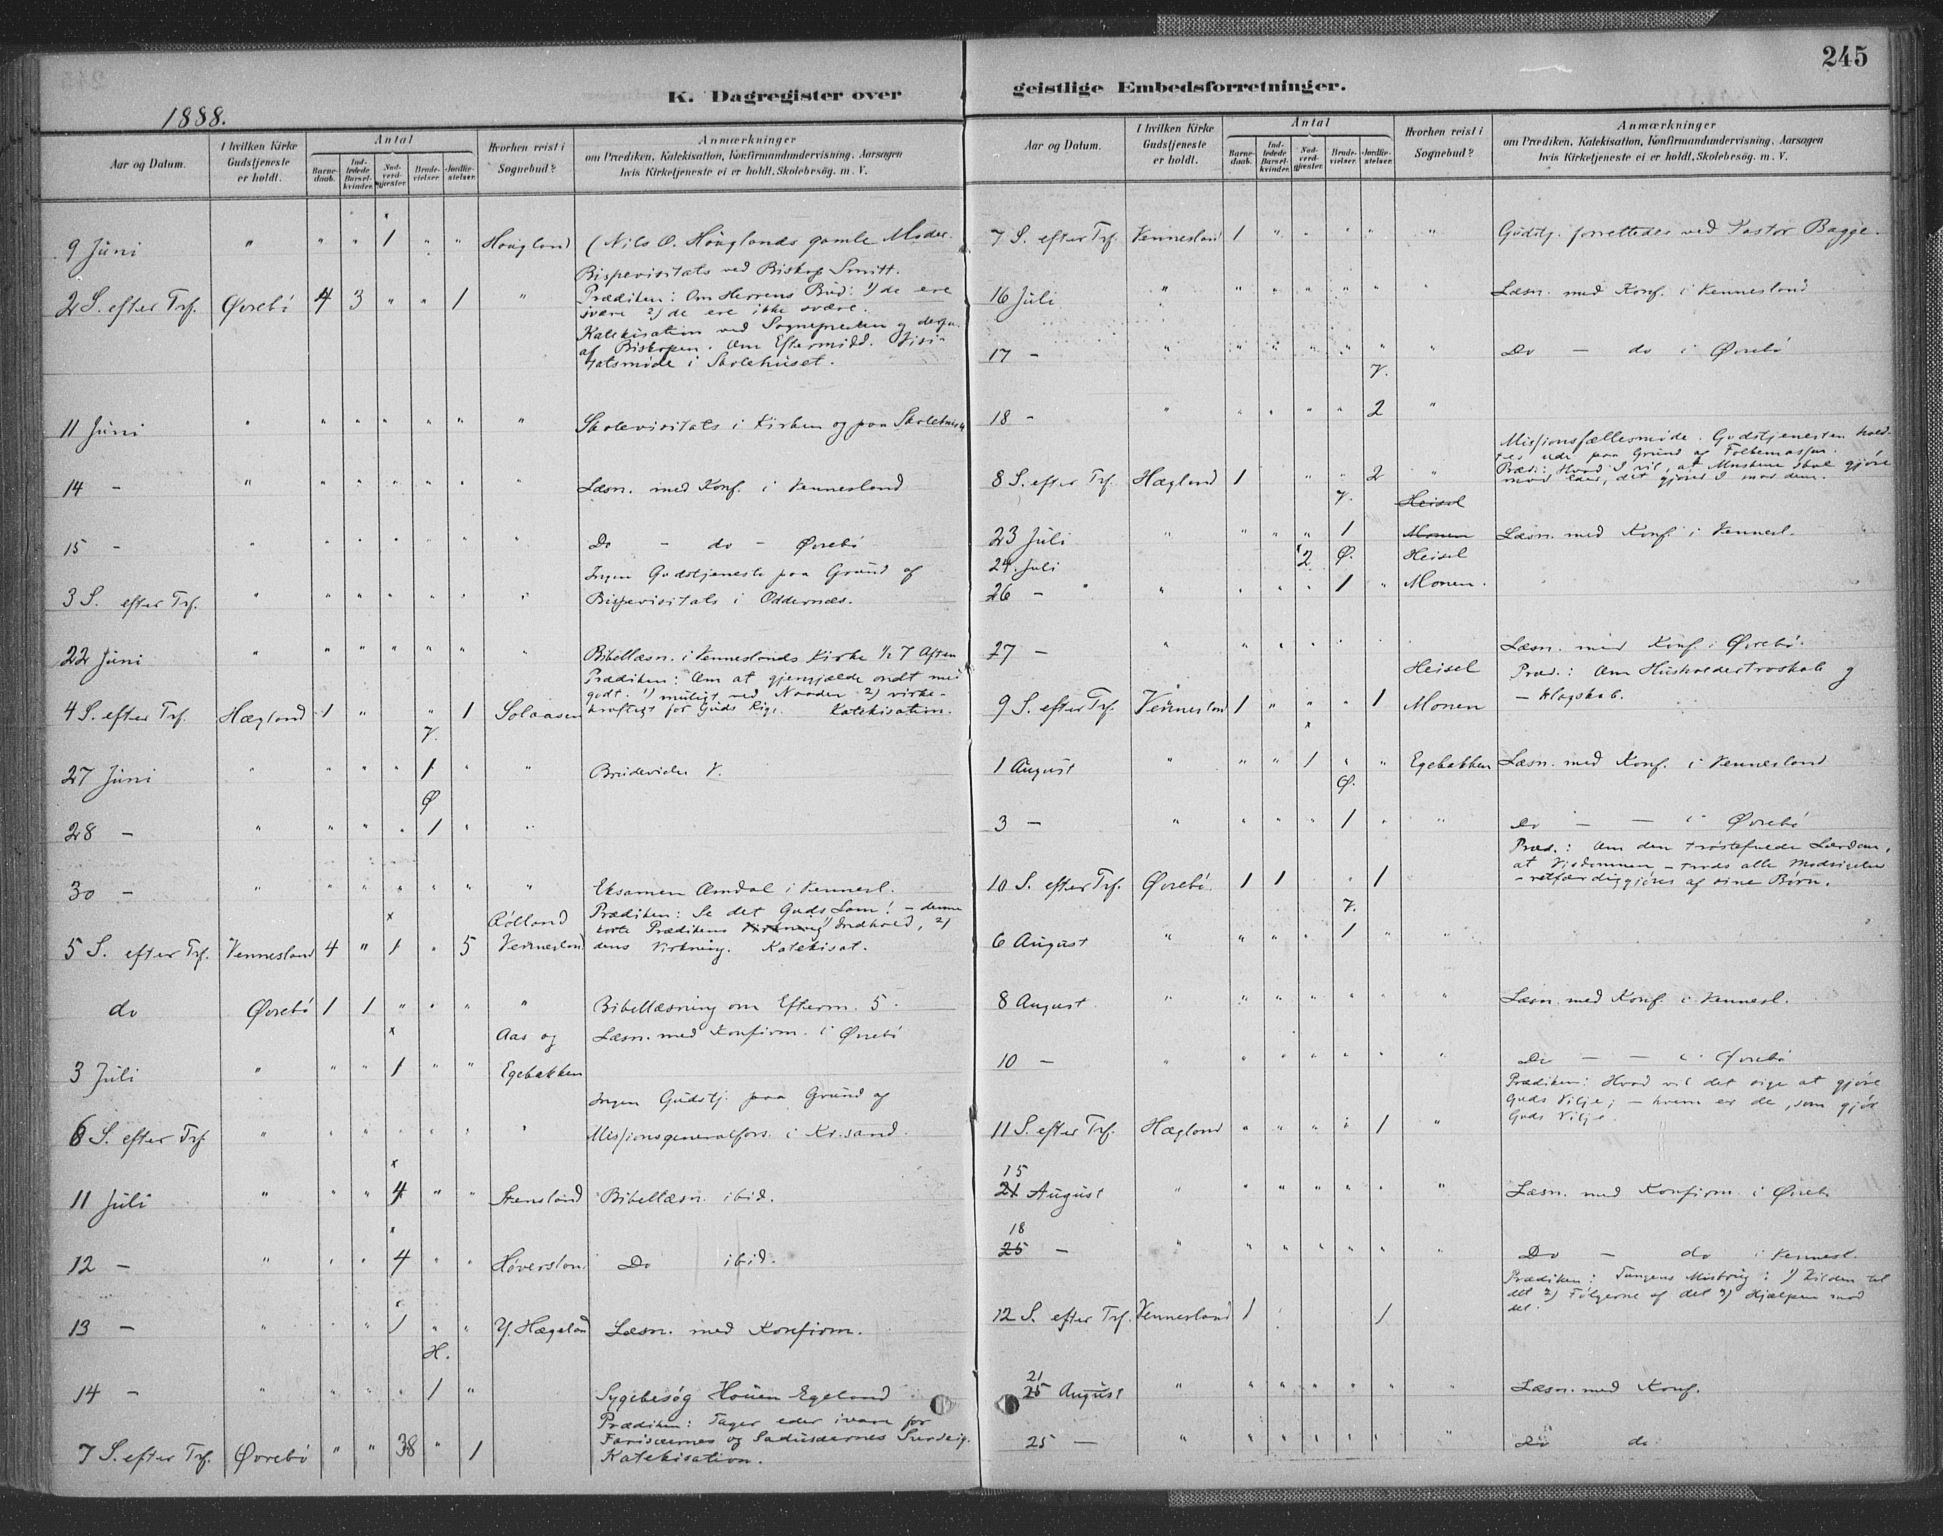 245
K. Dagregister over geistlige Embedsforretninger.
1888.
Aar og Datum. I hvilken Kirke Gudstjeneste er holdt. Antal Barnedaab. Indledede Barselkvinder. Nadverdgjester. Brudevielser. Jordfæstelser. Hvorhen reist i Sognebud? Anmærkninger om Prædiken, Katekisation, Konfirmandundervisning, Aarsagen hvis Kirketjeneste ei er holdt, Skolebesøg. m. V.
9 Juni " " " 1 " " Houglond (Nils O. Höuglands gamle Moder
Bispevisitats ved Biskop Smitt.
2 S. efter Trf. Øvrebö 4 3 " " 1 " Prædiken: Om Herrens Bud: 1) de ere
svære 2) de ere ikke svære.
Katekisation ved Sognepresten og
af Biskopen. Om Eftermidd. Visi-
tatsmöde i Skolehuset.
11 Juni " " " " " " " Skolevisitats i Kirken og paa Skolehuset
14 - " " " " " " " Læsn. med Konf. i Vennesland
15 - " " " " " " " Do - do - Øvrebö
Ingen Gudstjeneste paa Grund af
3 S. efter Trf. " " " " " " " Bispevisitats i Oddernæs.
22 Juni " " " " " " " Bibellæsn. i Venneslands Kirke ½ 7 Aften
Prædiken: Om at gjengjælde ondt med
godt. 1) muligt ved Naaden 2) virke-
4 S. efter Trf. Hægland 1 " " 1 Solaasen kraftigt for Guds Rige. Katekisation.
V.
27 Juni " " " " 1 " " Brudevielse V.
Ø
28 - " " " " 1 " "
30 - " " " " " " " Eksamen Omdal i Vennesl.
x Prædiken: Se det Guds Lam! - denne
korte Prædikens Indhold, 2)
5 S. efter Trf. Vennesland 4 " 1 " 5 Vennesland dens Virkning. Katekisat.
do Øvrebö 1 1 " " " " Bibellæsning om Efterm. 5.
x Aas og Læsn. med Konfirm. i Øvrebö
3 Juli " " " 1 " " Egebakken
Ingen Gudstj. paa Grund af
6 S. efter Trf. " " " " " " " Missionsgeneralfors. i Kr.sand.
x
11 Juli " " " 4 " " Stensland Bibellæsn. ibid.
x
12 - " " " 4 " " Höverslan Do ibid.
x
13 - " " " 1 " " Y. Hægeland Læsn. med Konfirm.
H.
14 - " " " " 1 " Sygebesøg Houen Egeland
Prædiken: Tager eder ivare for
Farisæernes og Sadusæernes Surdeig.
7 S. efter Trf. Øvrebö " " 38 " 1 Katekisation.
Aar og Datum. I hvilken Kirke Gudstjeneste er holdt. Antal Barnedaab. Indledede Barselkvinder. Nadverdgjester. Brudevielser. Jordfæstelser. Hvorhen reist i Sognebud? Anmærkninger om Prædiken, Katekisation, Konfirmandundervisning, Aarsagen hvis Kirketjeneste ei er holdt, Skolebesøg. m. V.
7 S. efter Trf. Vennesland 1 " " " " " Gudstj. forrettedes ved Pastor Bagge.
16 Juli " " " " " " " Læsn. med Konf. i Vennesland
17 - " " " " " " " Do - do i Øvrebö
V.
18 - " " " " " 2 "
Missionsfællesmöde. Gudstjenesten hold-
tes ude paa Grund af Folkemassen.
8 S. efter Trf. Hægland 1 " " 2 " Præd.: Hvad I vil, at Mnskene skal gjöre
mod eder, det gjører I mod dem.
V. Heisel
23 Juli " " " " 1 Monen Læsn. med Konf. i Vennesl.
24. Juli x 2 Ø. Heisel
26 - " " " " " 1 " Monen.
27 - " " " " " " Læsn. med Konf. i Øvrebö.
Heisel Præd.: Om Husholdertroskab og
9 S. efter Trf. Vennesland 1 " " " 1 Monen - klogskab.
x
1 August " " " 1 " " Egebakken Læsn. med Konf. i Vennesland
Ø.
3 - " " " " 1 " " Do - - i Øvrebö
Præd.: Om den tröstefulde Lærdom,
at Visdommen - trods alle Modsigelser
10 S. efter Trf. Øvrebö. 1 1 " 1 - retfærdiggjöres af sine Börn.
V.
6 August " " " " 1 " "
8 August " " " " " " " Læsn. med Konf. i Vennesl.
10 - " " " " " " " Do - - i Øvrebö
Prædiken: Hvad vil det sige at gjöre
Guds Vilje; - hvem er de, som gjör
11 S. efter Trf. Hægland " " " " 1 " Guds Vilje
15
21 August " " " " " " " Læsn. med Konfirm. i Øvreb
18
25 - " " " " " " " Do - do i Vennesl.
Prædiken: Tungens Misbrug: 1) Kilden til
det 2) Fölgerne af det 3) Hjælpen mod
12 S. efter Trf. Vennesland 1 1 det.
21
25 August " " " " " " " Læsn. med Konf.
25 - " " " " " " " Do do